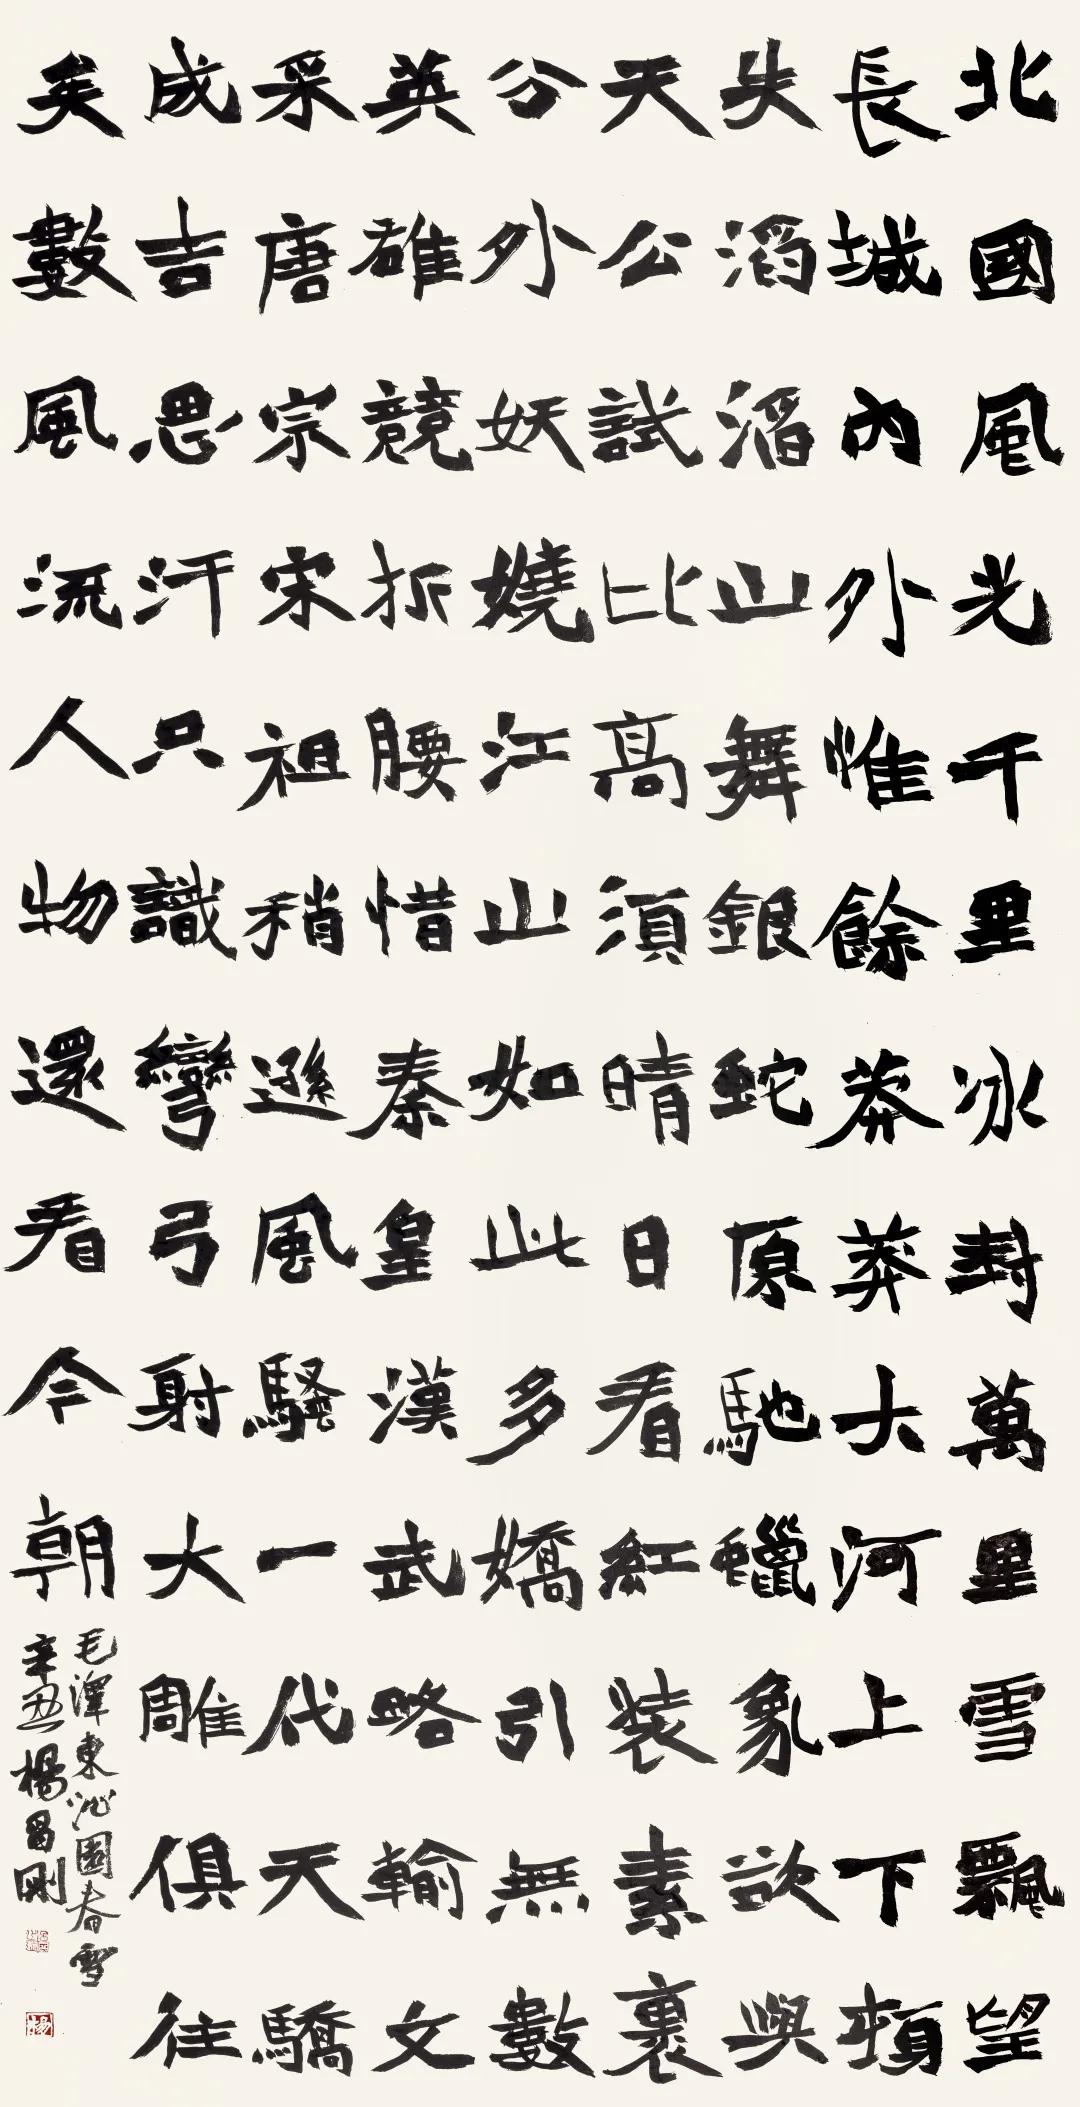 北國風光千里冰封萬里雪飄望
長城內外惟餘莽莽大河上下頓
失滔滔山舞銀蛇原馳蠟象欲與
天公試比高湏晴日看紅裝素裹
分外妖嬈江山如此多嬌引無數
英雄競折腰惜秦皇漢武略輸文
采唐宗宋祖稍遜風騷一代天驕
成吉思汗只識彎弓射大雕俱往
矣數風流人物還看今朝
毛澤東沁園春雪
辛丑楊昌剛
楊